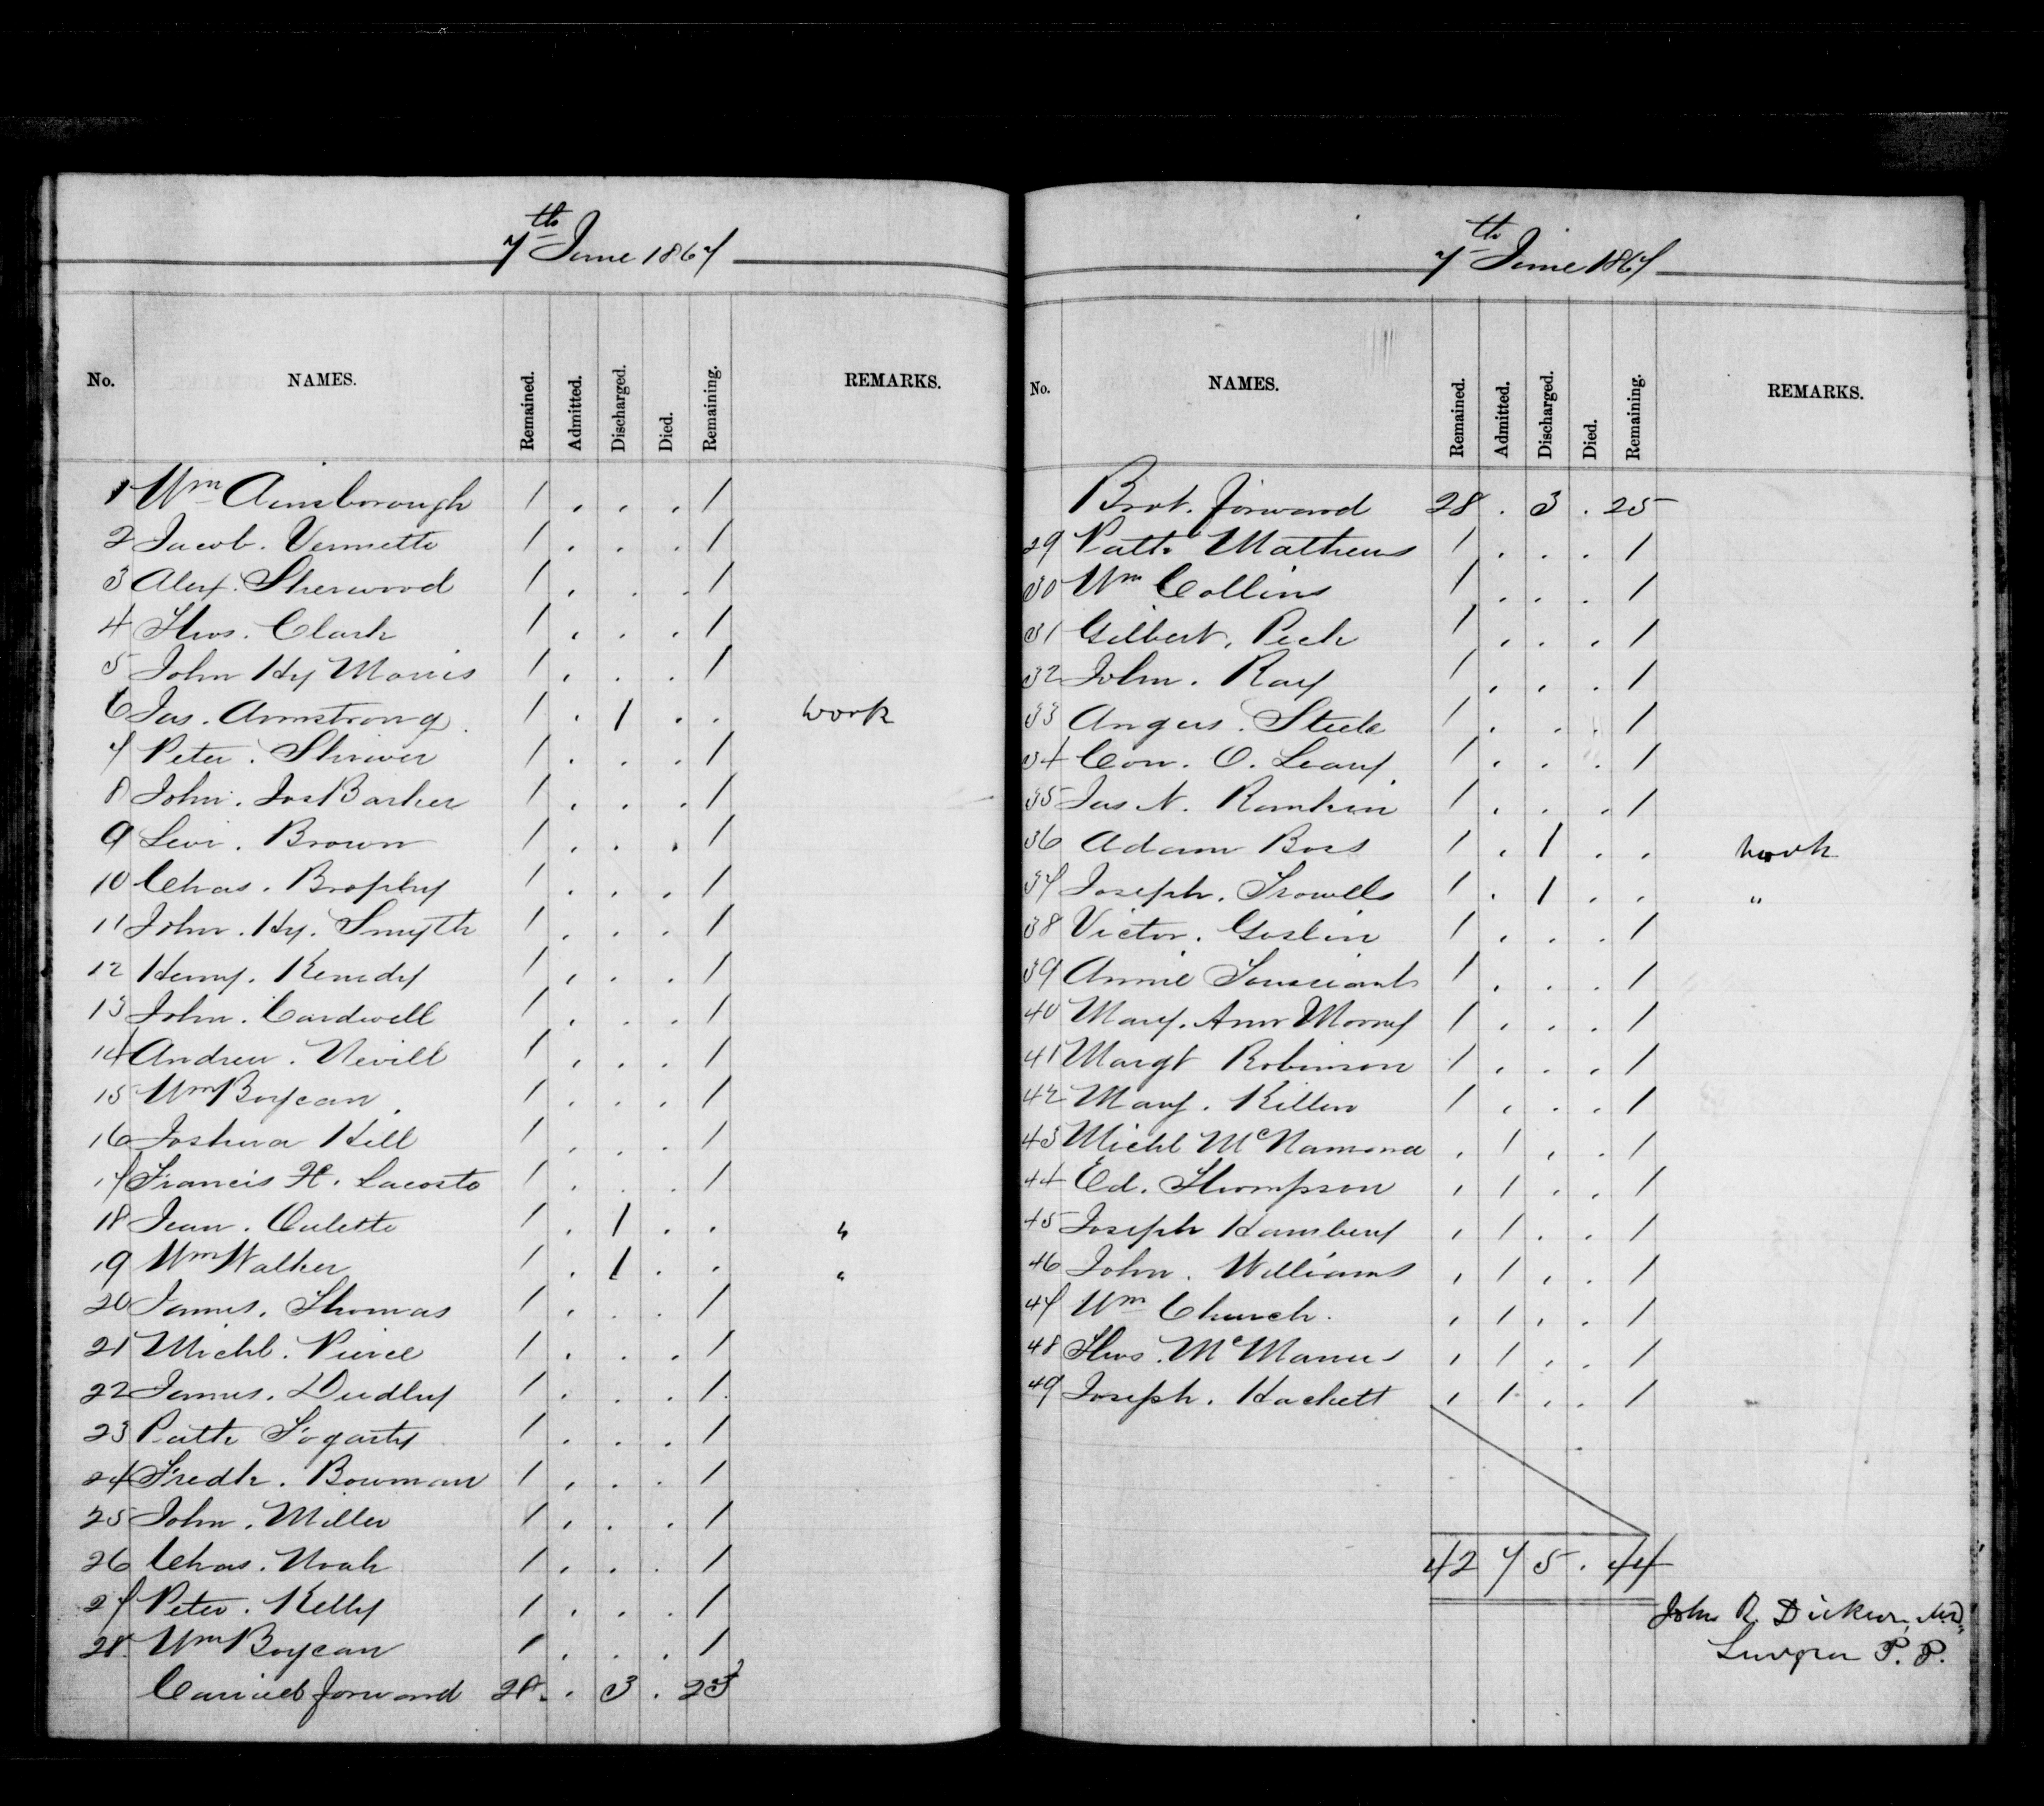 7th June 1867
No. NAMES. Remained. Admitted. Discharged. Died. Remaining. REMARKS.
1 Wm Ainsborough 1 . . . 1
2 Jacob. Vermette 1 . . . 1
3 Alex. Sherwood 1 . . . 1
4 Thos. Clark 1 . . . 1
5 John Hy Morris 1 . . . 1
6 Jas. Armstrong. 1 . 1 . . work
7 Peter. Shriver 1 . . . 1
8 John. Jos Barker 1 . . . 1
9 Levi. Brown 1 . . . 1
10 Chas. Brophy 1 . . . 1
11 John. Hy. Smyth 1 . . . 1
12 Henry. Kenedy 1 . . . 1
13 John. Cardwell 1 . . . 1
14 Andrew. Nevill 1 . . . 1
15 Wm Boycan. 1 . . . 1
16 Joshua Hill 1 . . . 1
17 Francis H. Lacoste 1 . . . 1
18 Jean. Oulette 1 . 1 . . "
19 Wm Walker 1 . 1 . . "
20 James. Thomas 1 . . . 1
21 Michl. Pierce 1 . . . 1
22 James. Dudley 1 . . . 1
23 Patk Fogarty 1 . . . 1
24 Fredk. Bowman 1 . . . 1
25 John. Miller 1 . . . 1
26 Chas. Noah 1 . . . 1
27 Peter. Kelly 1 . . . 1
28. Wm Boycan 1 . . . 1
Carried forward 28. . 3 . 25
7th June 1867
No. NAMES. Remained. Admitted. Discharged. Died. Remaining. REMARKS.
Brot. forward 28 . 3 . 25
29 Patk Mathews 1 . . . 1
30 Wm Collins 1 . . . 1
31 Gilbert. Peck 1 . . . 1
32 John. Ray 1 . . . 1
33 Angus. Steele 1 . . . 1
34 Con. O. Leary. 1 . . . 1
35 Jas N. Rankin 1 . . . 1
36 Adam Boss 1 . 1 . . work
37 Joseph. Trowells 1 . 1 . . "
38 Victor. Goslin 1 . . . 1
39 Annie 1 . . . 1
40 Mary. Ann Morney 1 . . . 1
41 Margt Robinson 1 . . . 1
42 Mary. Killen 1 . . . 1
43 Michl McNamara . 1 . . 1
44 Ed. Thompson . 1 . . 1
45 Joseph Hansbury . 1 . . 1
46 John. Williams . 1 . . 1
47 Wm Church. . 1 . . 1
48 Thos. McManus . 1 . . 1
49 Joseph. Hackett . 1 . . 1
42 7 5 . 44
John R. Dickson, MD,
Surgeon P. P.